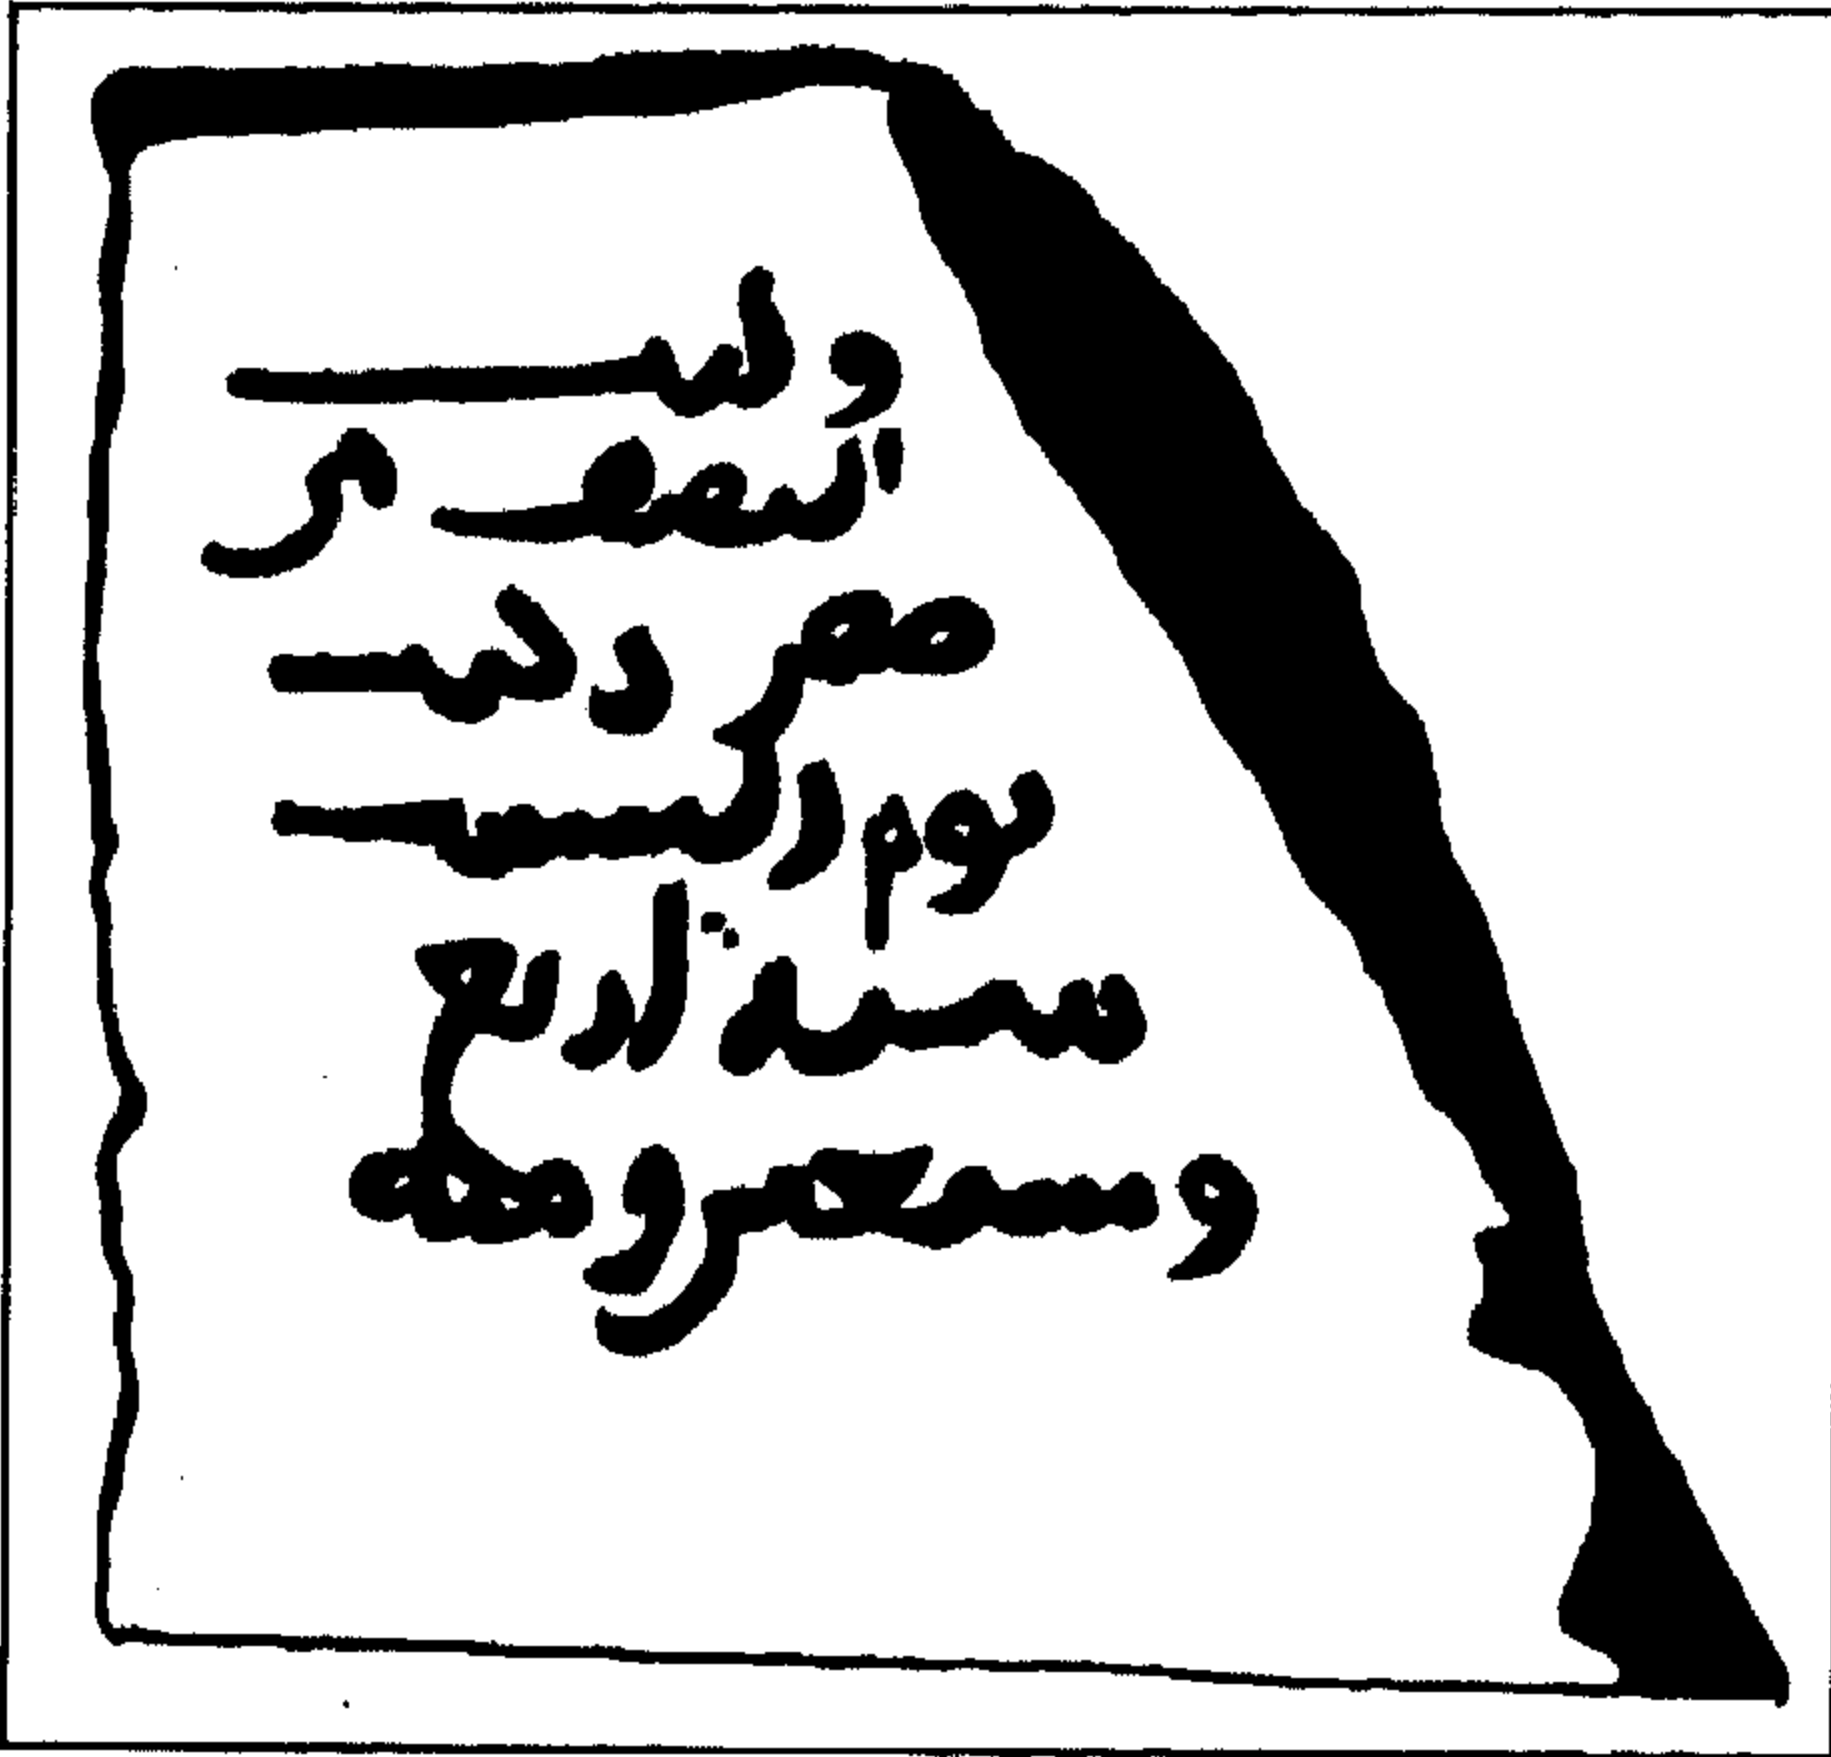 وكتب
النصف من
صفر
يوم السبت
سنة اربع
وسبعين ومئة